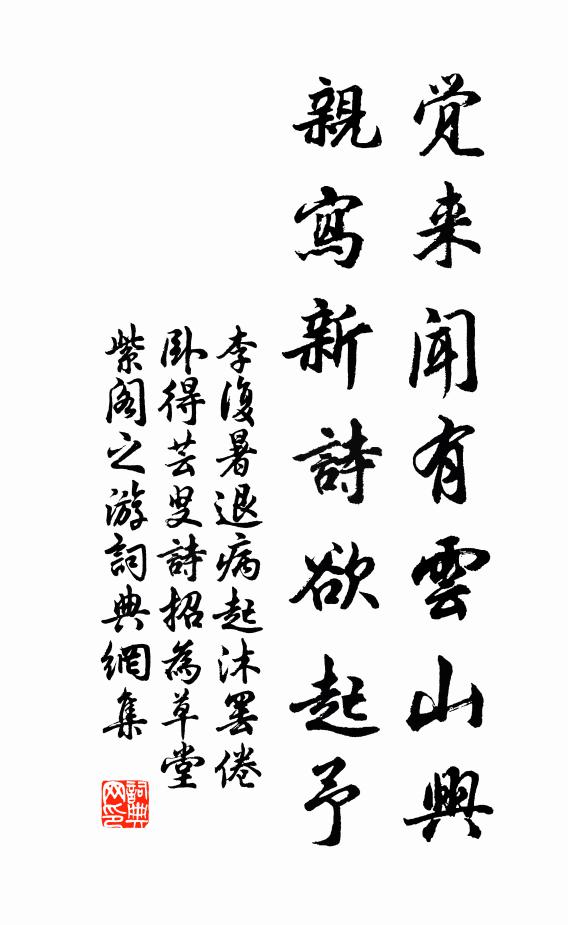 覚来闻有雲山興
親寫新詩欲起予
李復暑退病起沐罢倦
卧得芸叟詩招為草堂
紫阁之游詞典網集
詞典网印